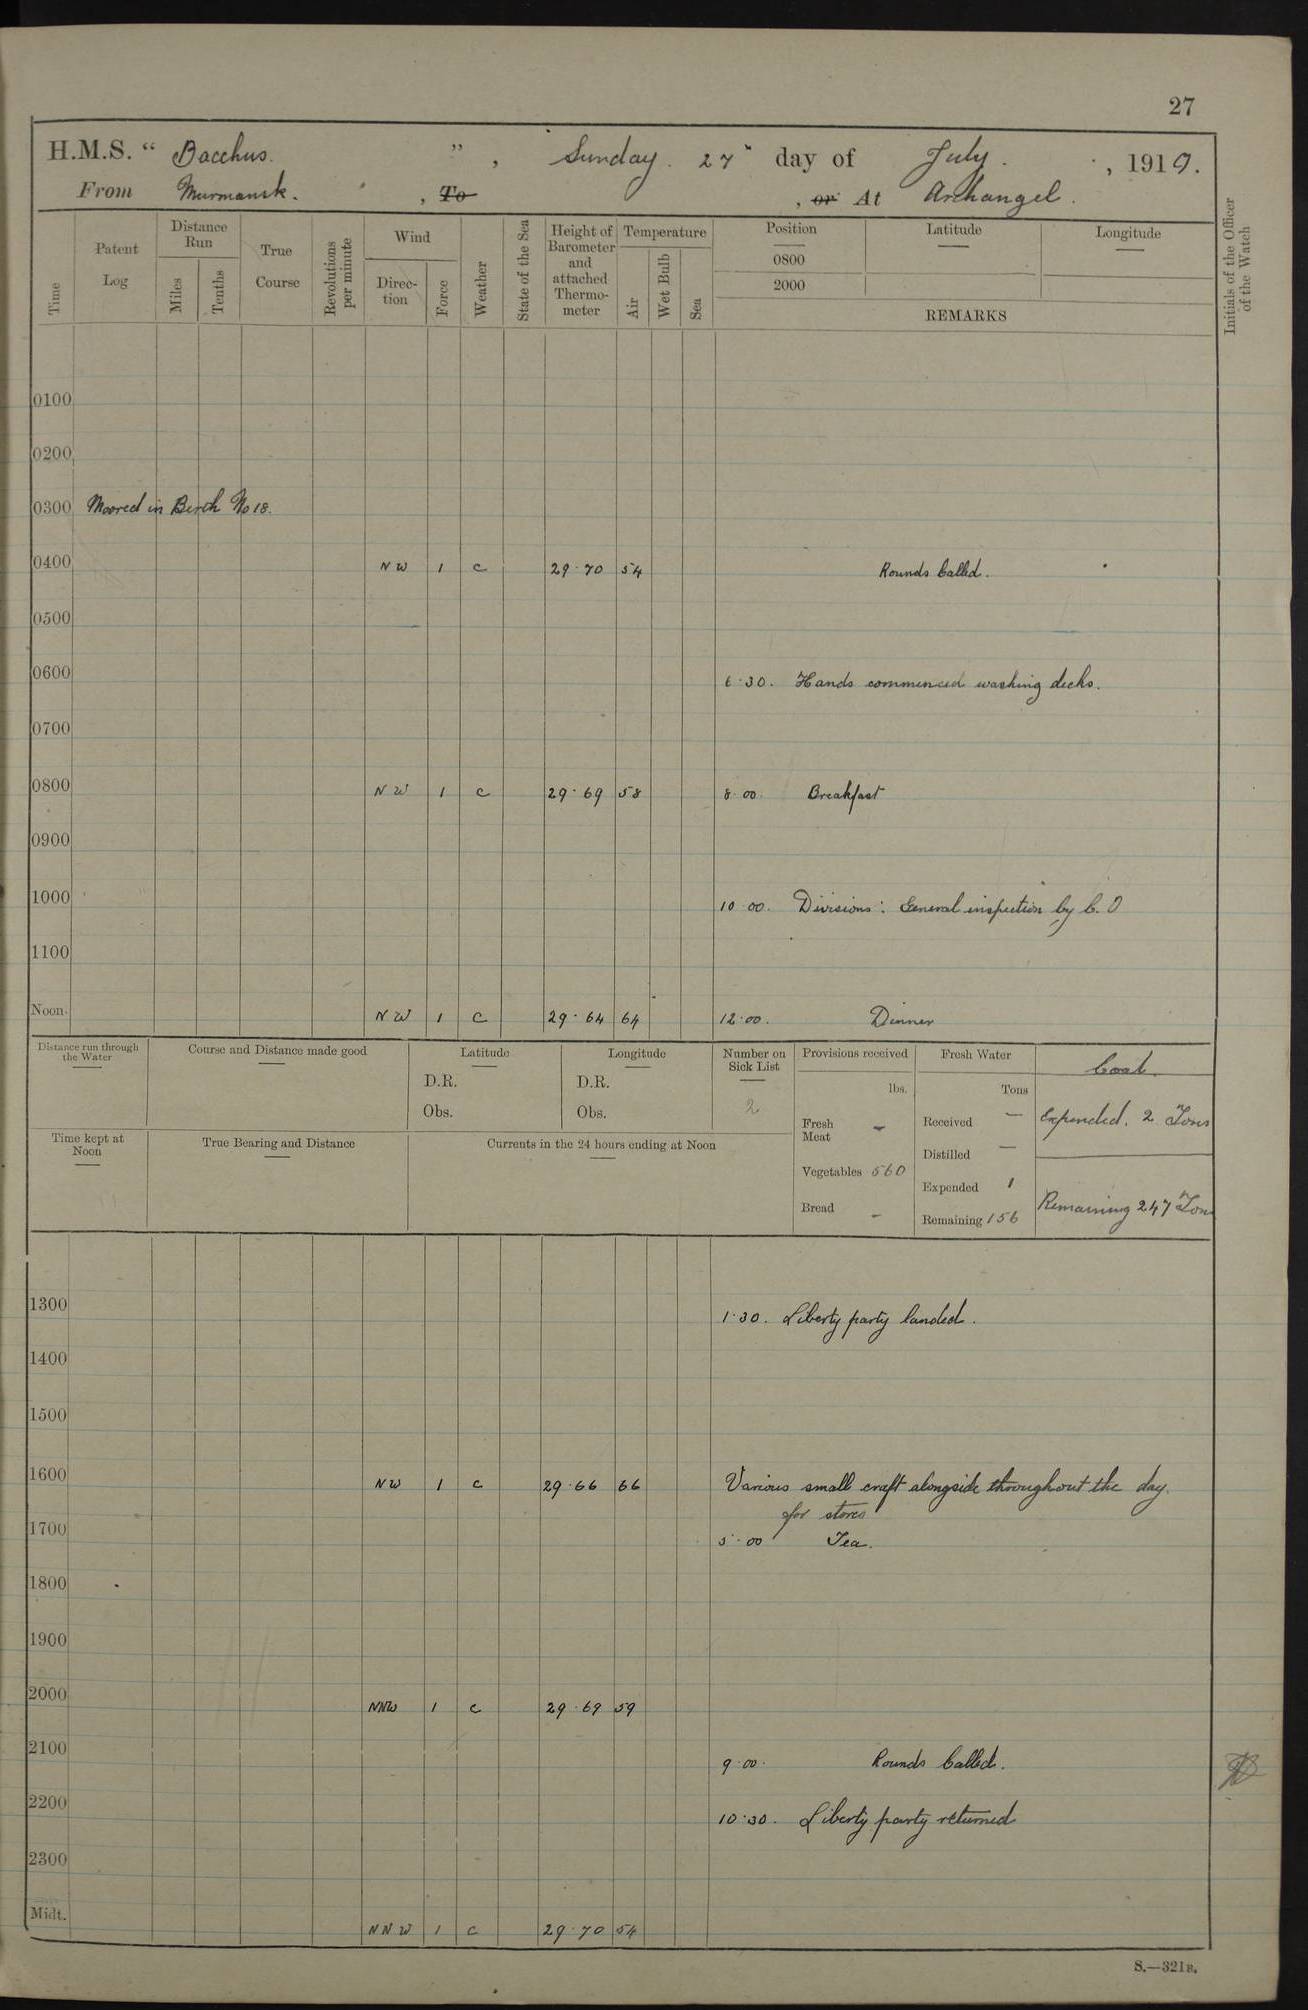 27
H.M.S. “ Bacchus. ” , Sunday. 27" day of July. , 1919.
From Murmansk. , To , or At Archangel.
Time
Patent Log
Distance Run
Miles
Tenths
True Course
Revolutions per minute
Wind
Direc-tion
Force
Weather
State of the Sea
Height of Barometer and attached Thermo-meter
Temperature
Air
Wet Bulb
Sea
Position
0800
2000
Latitude
Longitude
REMARKS
Initials of the Officer of the Watch
0100
0200
0300 Moored in Berth No 18.
0400 NW 1 c 29.70 54 Rounds Called.
0500
0600
6.30. Hands commenced washing decks.
0700
0800 NW 1 c 29.69 58 8.00. Breakfast
0900
1000 10.00. Divisions: General inspection by C.O
1100
Noon. NW 1 c 29.64 64 12.00. Dinner
Distance run through the Water
Course and Distance made good
Latitude
D.R.
Obs.
Longitude
D.R.
Obs.
Number on Sick List
2
Provisions received
lbs.
Fresh Meat -
Vegetables 560
Bread -
Fresh Water
Tons
Received —
Distilled —
Expended 1
Remaining 156
Coal.
Expended. 2 Tons
Remaining 247 Tons
Time kept at Noon
True Bearing and Distance
Currents in the 24 hours ending at Noon
1300 1.30. Liberty party landed.
1400
1500
1600 NW 1 c 29.66 66 Various small craft alongside throughout the day.
for stores
1700 5.00 Tea.
1800
1900
2000 NNW 1 c 29.69 59
2100 9.00. Rounds Called.
2200 10.30. Liberty party returned
2300
Midt. NNW 1 c 29.70 54
S.—321B.